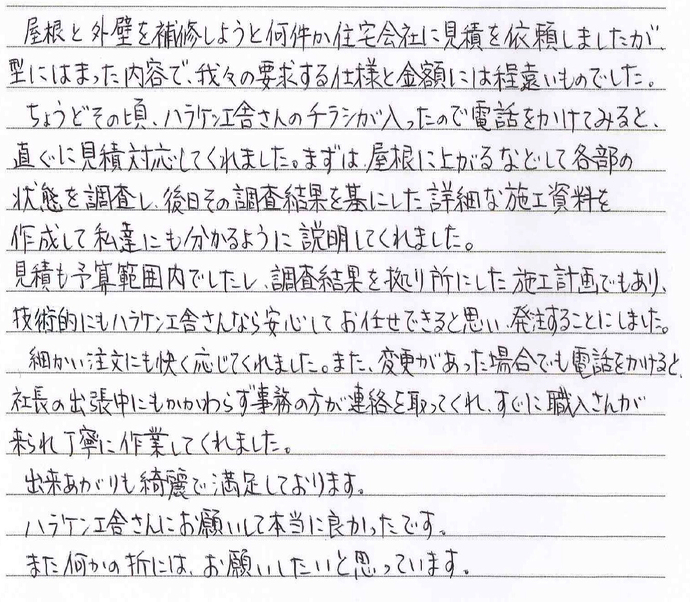 屋根と外壁を補修しようと何件か住宅会社に見積を依頼しましたが、
型にはまった内容で、我々の要求する仕様と金額には程遠いものでした。
ちょうどその頃、ハラケン工舎さんのチラシが入ったので電話をかけてみると、
直ぐに見積対応してくれました。まずは、屋根に上がるなどして各部の
状態を調査し、後日その調査結果を基にした詳細な施工資料を
作成して私達にも分かるように説明してくれました。
見積も予算範囲内でしたし、調査結果を拠り所にした施工計画でもあり、
技術的にもハラケン工舎さんなら安心してお任せできると思い、発注することにしました。
細かい注文にも快く応じてくれました。また、変更があった場合でも電話をかけると、
社長の出張中にもかかわらず事務の方が連絡を取ってくれ、すぐに職人さんが
来られ丁寧に作業してくれました。
出来あがりも綺麗で満足しております。
ハラケン工舎さんにお願いして本当に良かったです。
また何かの折には、お願いしたいと思っています。